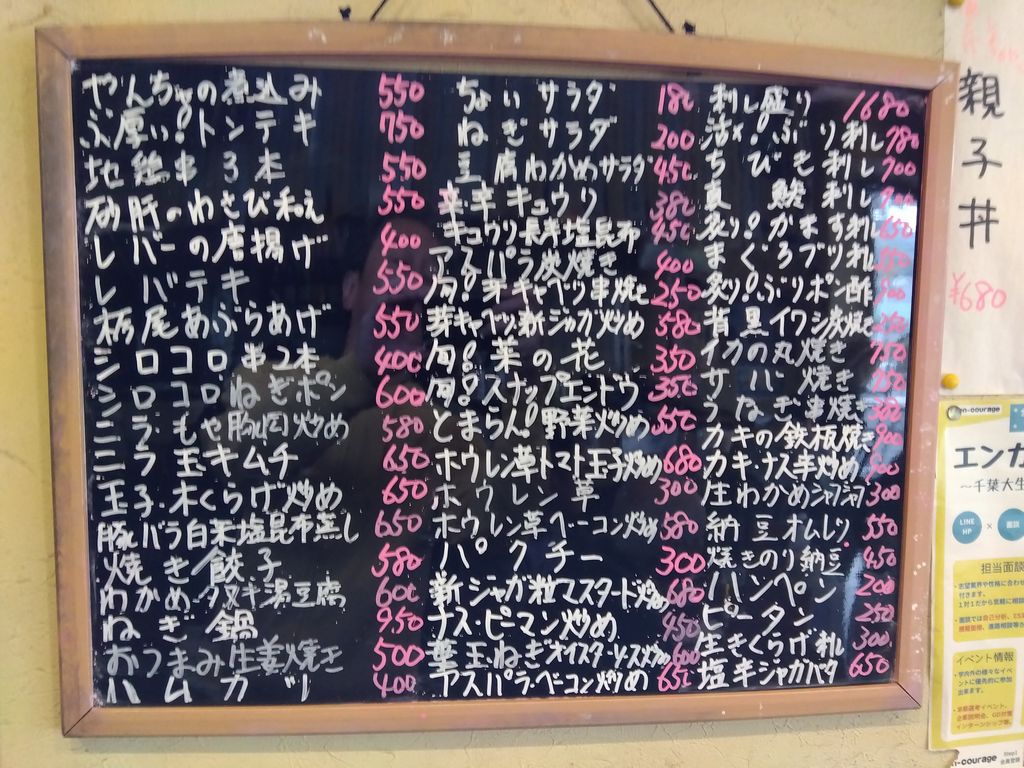 やんちょの煮込み 550
ぶ厚い!トンテキ 750
地鶏串3本 550
砂肝のわさび和え 550
レバーの唐揚げ 400
レバテキ 550
栃尾あぶらあげ 550
シロコロ串2本 400
シロコロねぎポン 600
ニラ・もや豚肉炒め 580
ニラ玉キムチ 650
玉子・木くらげ炒め 650
豚バラ白菜塩昆布蒸し 650
焼き餃子 580
わかめ・タヌキ湯豆腐 600
ねぎ鍋 950
おつまみ生姜焼き 500
ハムカツ 400
ちょいサラダ 180
ねぎサラダ 200
豆腐わかめサラダ 450
辛・辛キュウリ 380
キュウリ 塩昆布 450
アスパラ炭焼き 400
旬!芽キャベツ串焼き 250
芽キャベツ新ジャガ炒め 580
旬!菜の花 350
旬!スナップエンドウ 350
とまらん!野菜炒め 550
ホウレン草トマト玉子炒め 680
ホウレン草 300
ホウレン草ベーコン炒め 580
パクチー 300
新ジャガ粒マスタード炒め 680
ナス・ピーマン炒め 450
玉ねぎオイスターソース 600
アスパラ・ベーコン炒め 650
刺し盛り 1680
活〆!ぶり刺し 780
ちびき刺し 700
真鯵刺し
炙り!かます刺 650
まぐろブツ刺
炙り!ぶりポン酢
背黒イワシ炭焼き
イカの丸焼き 750
サバ焼き
うなぎ串焼き
カキの鉄板焼き 900
カキ・ナス辛炒め
生わかめシャブシャブ 300
納豆オムレツ 550
焼きのり納豆 450
ハンペン 200
ピータン 250
生きくらげ刺 300
塩辛ジャガバタ 650
親子丼
¥680
en-courage
エンカ
～千葉大生
LINE
HP
×
面談
担当面談
イベント情報
n-courage